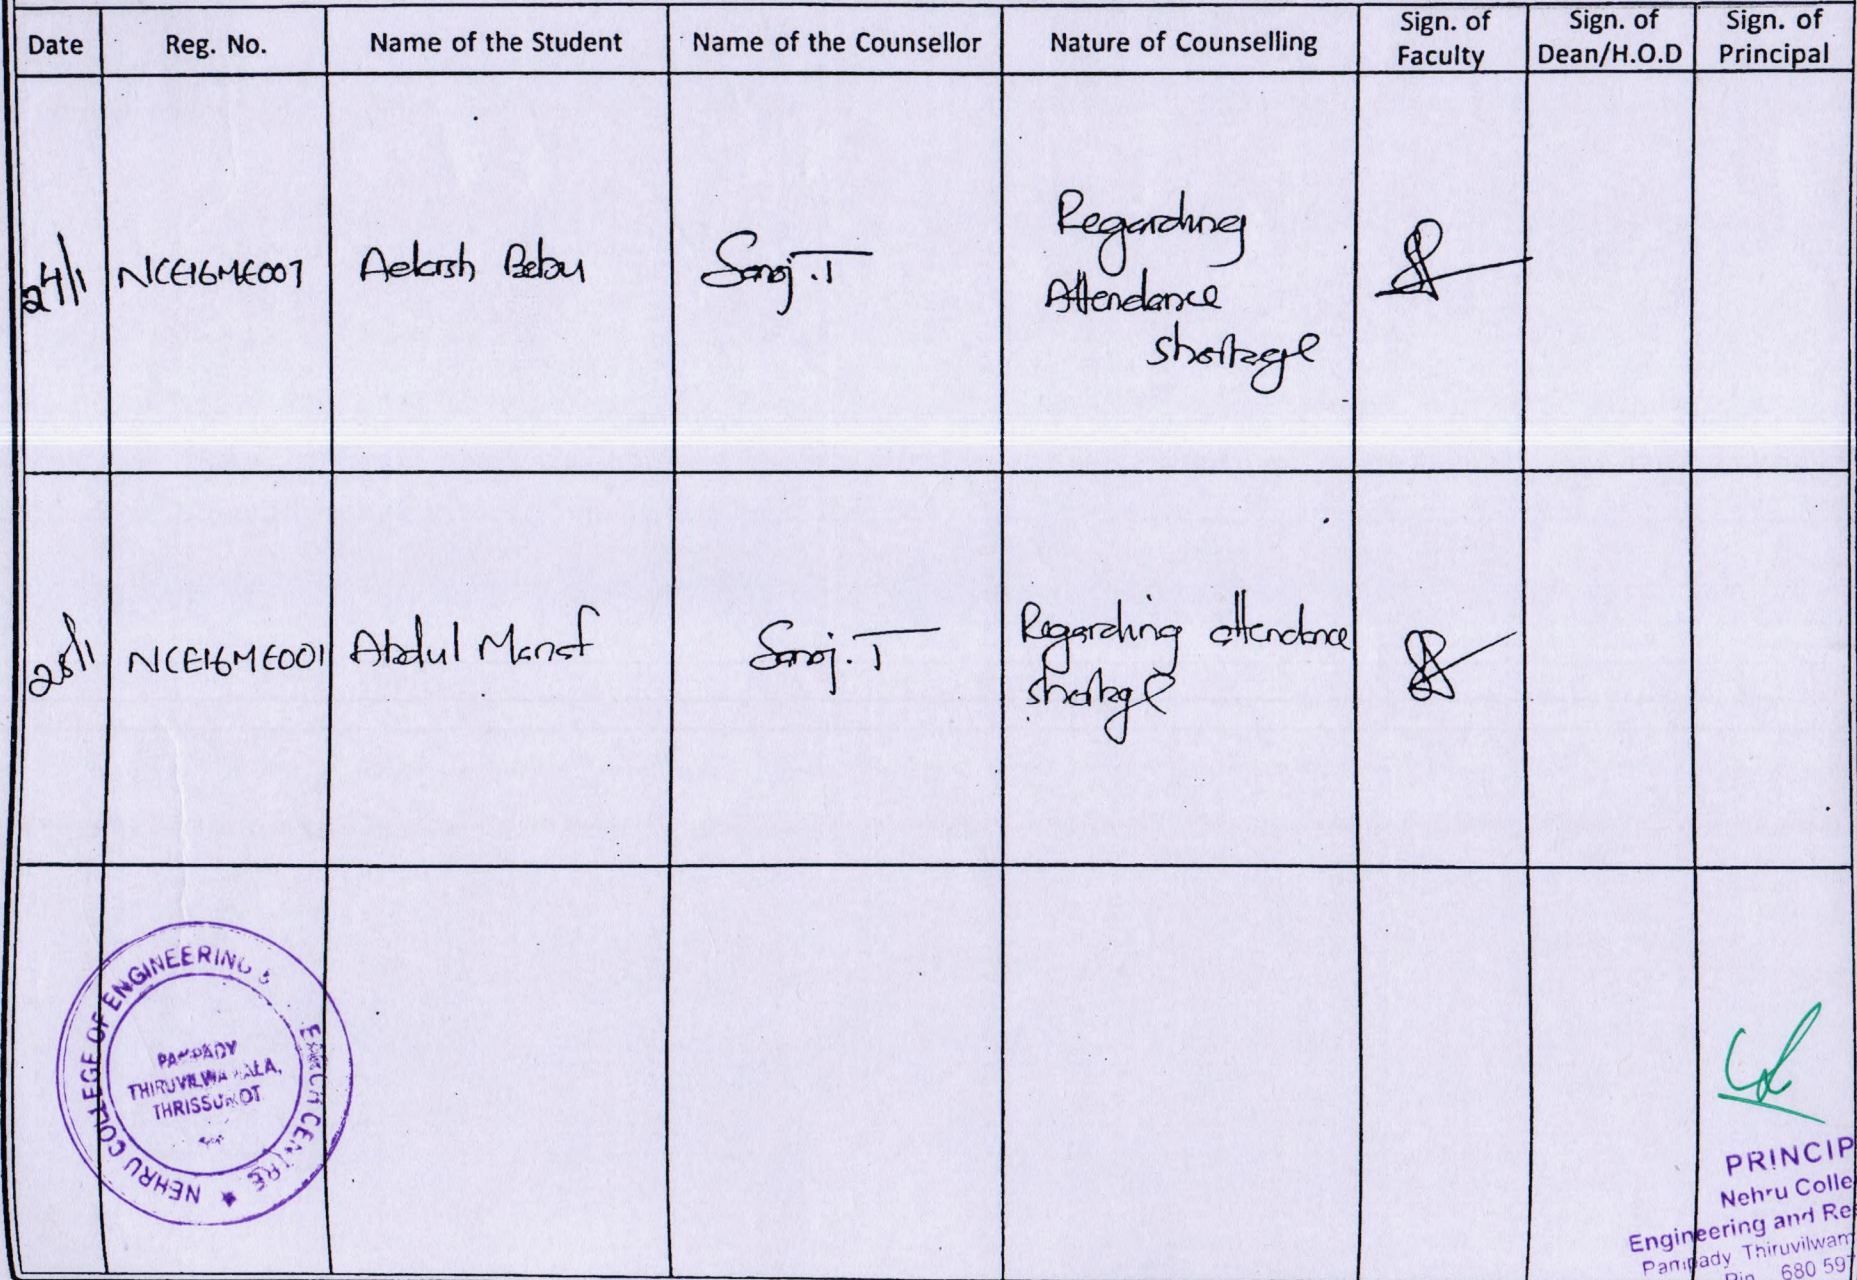 Date Reg. No. Name of the Student Name of the Counsellor Nature of Counselling Sign. of Faculty Sign. of Dean/H.O.D Sign. of Principal
24/1 NCE16ME007 Aakash Babu Sanoj.T Regarding
Attendance
shortage
25/1 NCE16ME001 Abdul Manaf Sanoj.T Regarding attendance
shortage
NEHRU COLLEGE OF ENGINEERING &
CENTRE
PAMPADY
THRISSUR DT
PRINCIP
Nehru Colle
Engineering and Re
Pampady Thiruvilwam
Pin 680 597